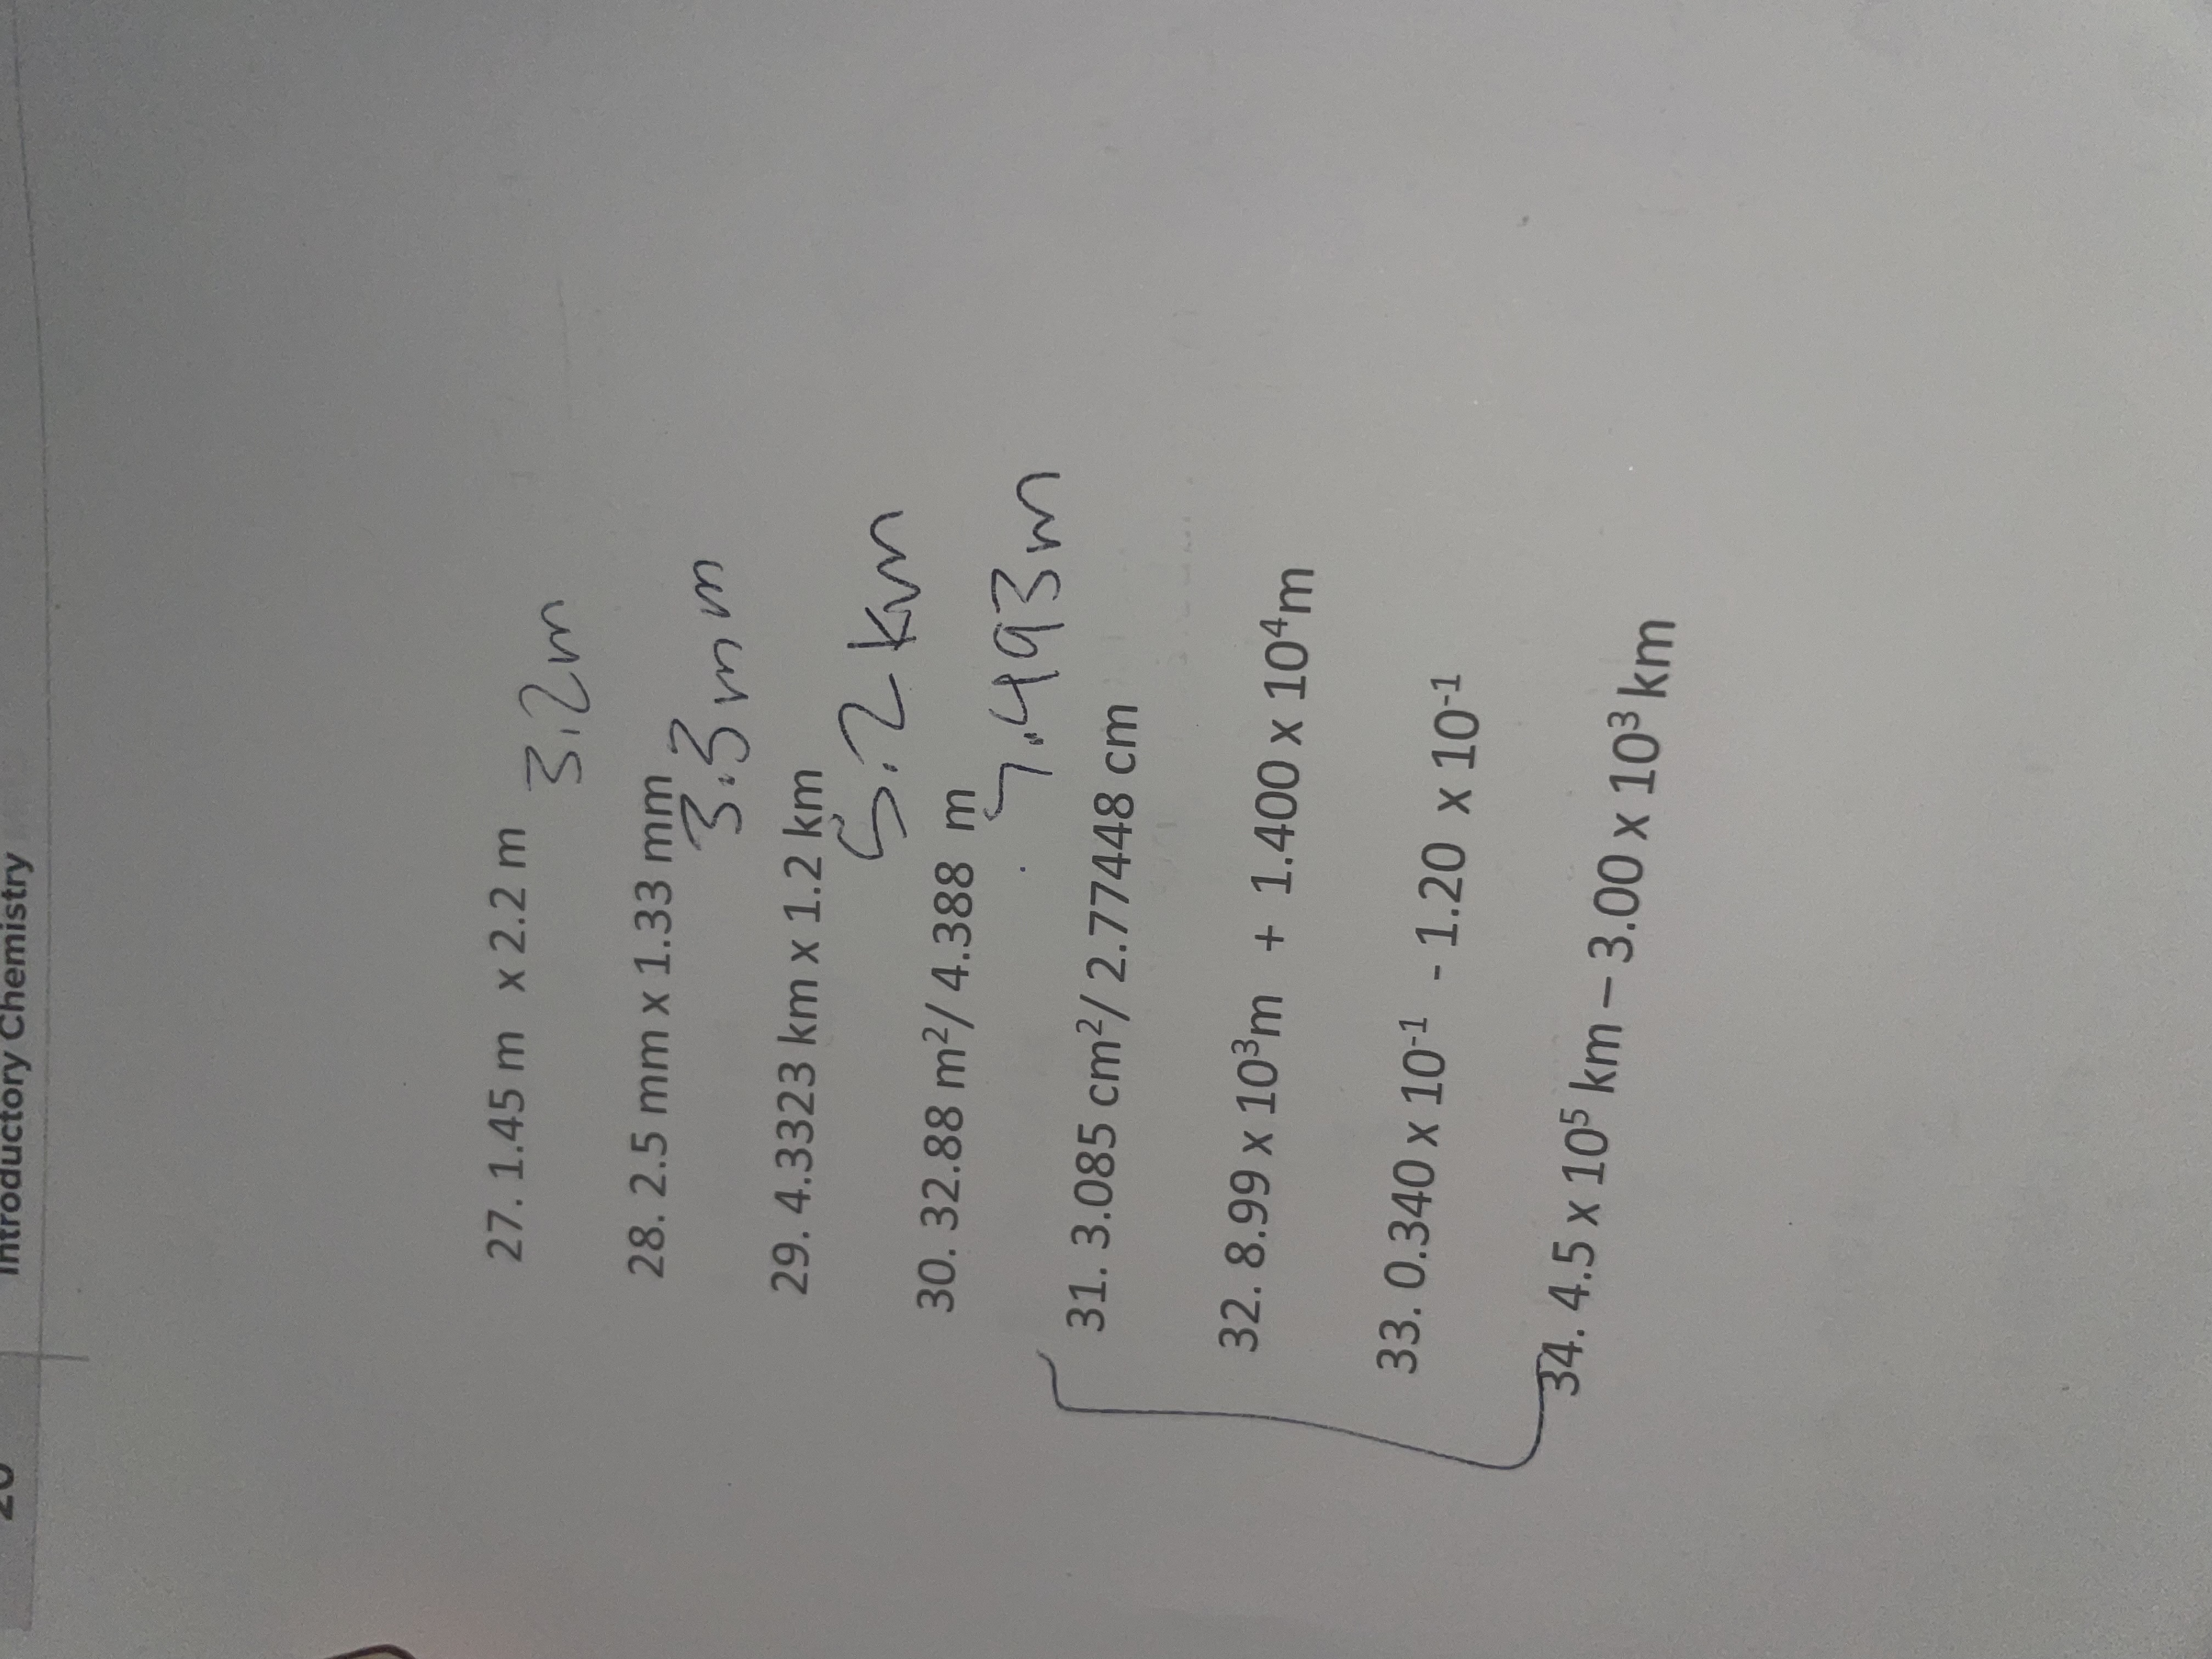 Introductory Chemistry
27. 1.45 m x 2.2 m
3.2m
28. 2.5 mm x 1.33 mm
3.3mm
29. 4.3323 km x 1.2 km
5.2 km
30. 32.88 m²/ 4.388 m
7.493m
31. 3.085 cm²/ 2.77448 cm
32. 8.99 x 10³m + 1.400 x 10⁴m
33. 0.340 x 10⁻¹ - 1.20 x 10⁻¹
34. 4.5 x 10⁵ km – 3.00 x 10³ km